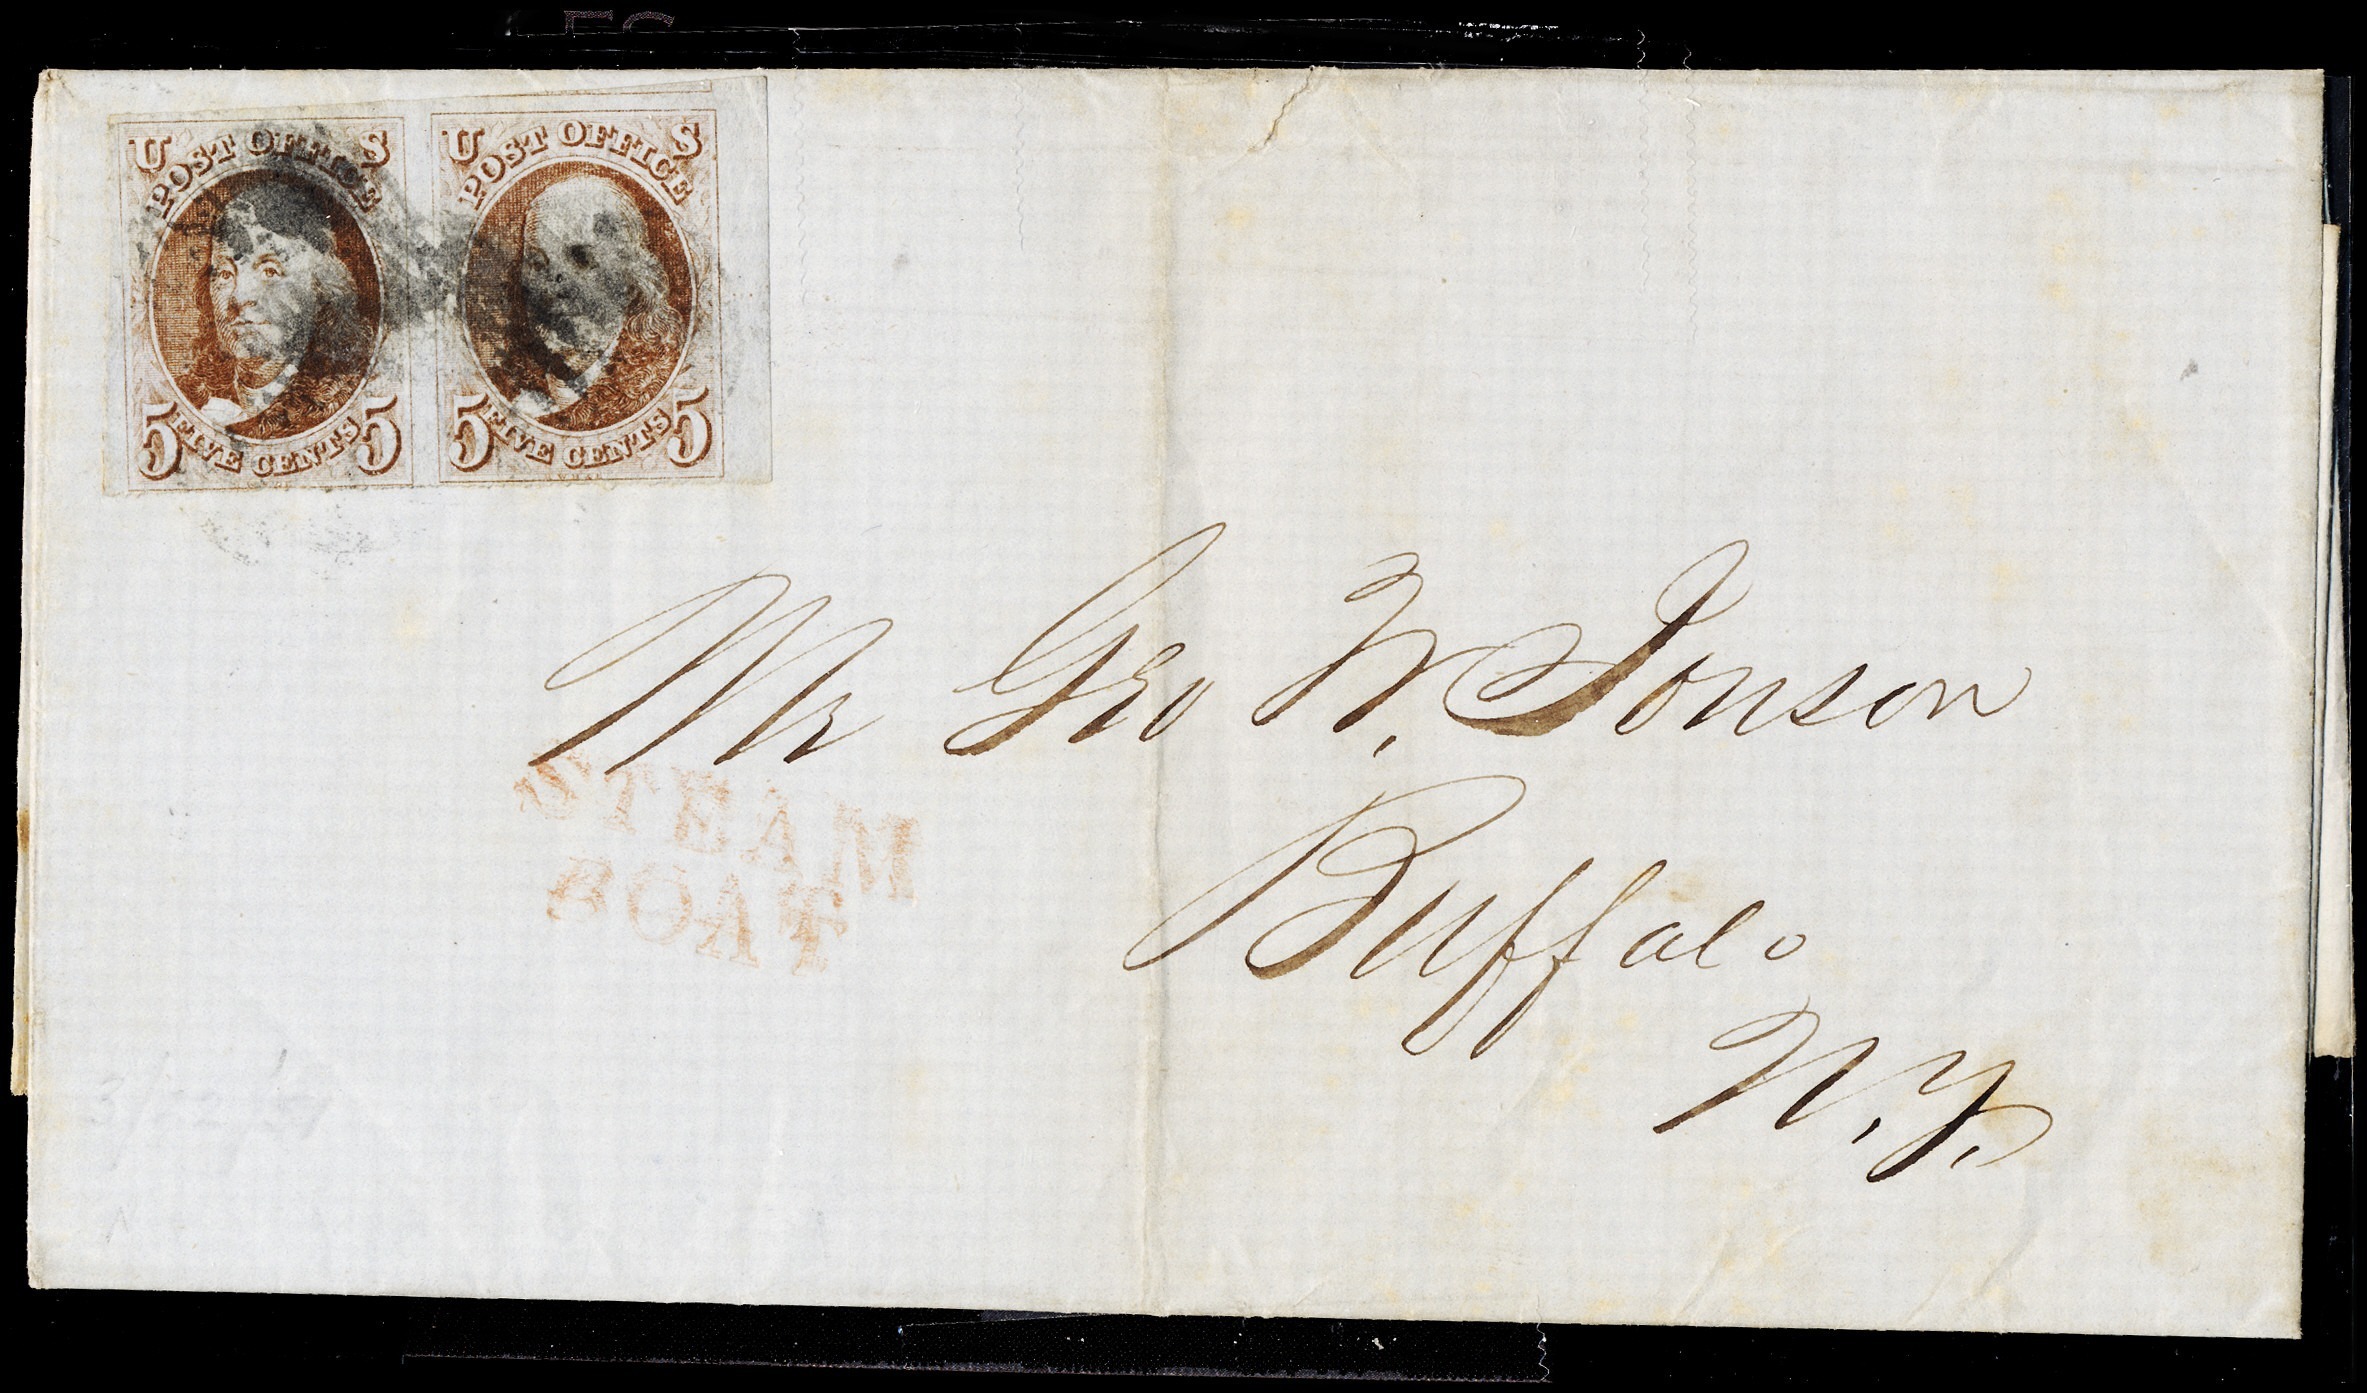 U S
POST OFFICE
5 FIVE CENTS 5
U S
POST OFFICE
5 FIVE CENTS 5
Mr Geo W. Jonson
STEAM
BOAT
Buffalo
N.Y.